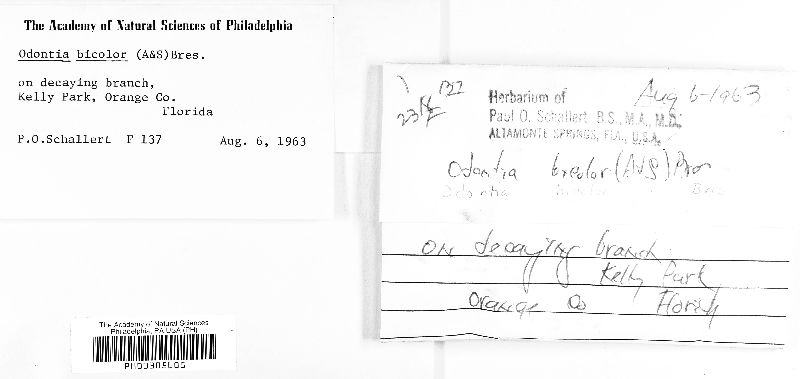 The Academy of Natural Sciences of Philadelphia
Odontia bicolor (A&S)Bres.
on decaying branch,
Kelly Park, Orange Co.
Florida
P.O.Schallert F 137 Aug. 6, 1963
Aug 6-1963
Herbarium of
Paul O. Schallert, B.S., M.A., M.D.
ALTAMONTE SPRINGS, FLA., U.S.A.
Odontia bicolor (A&S)
Odontia bicolor Bres
on decaying branch
Kelly Park
Orange Co Florida
The Academy of Natural Sciences
Philadelphia, PA USA (PH)